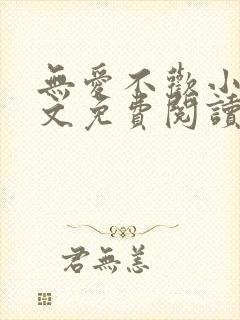 無愛不歡小
文免費閱讀
君無恙